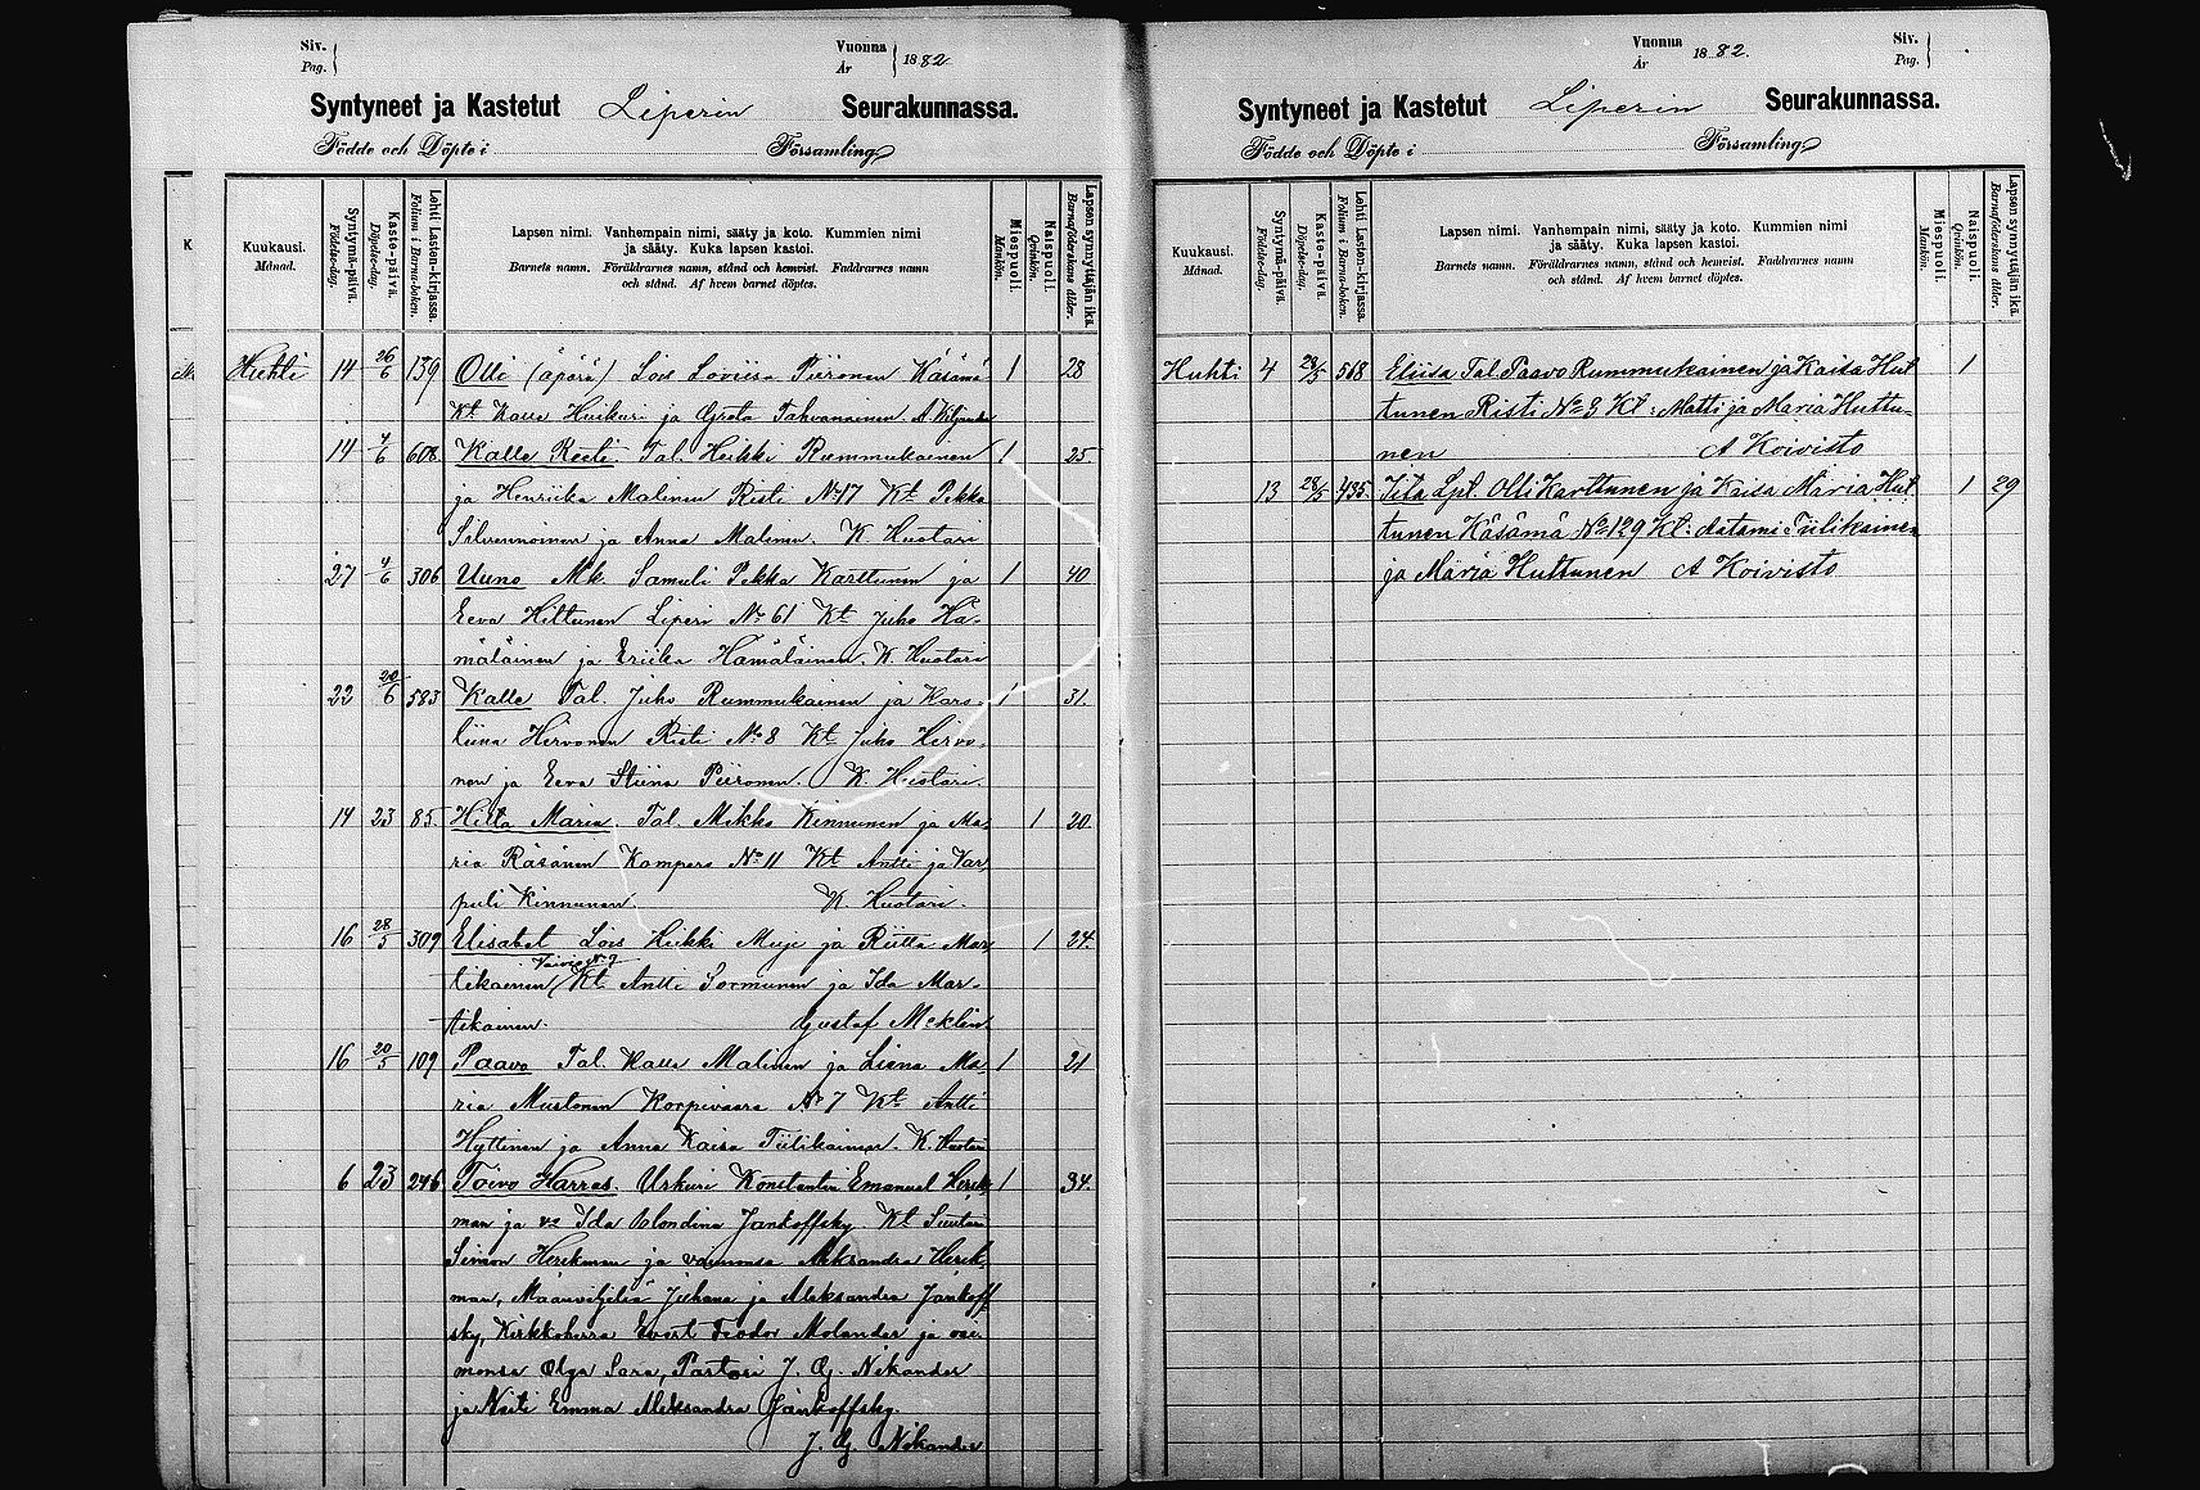 Siv.
Pag.
Vuonna
År
1882
Syntyneet ja Kastetut Liperin Seurakunnassa.
Födde och Döpte i Församling
Kuukausi.
Månad.
Syntymä-päivä.
Födelse-dag.
Kaste-päivä.
Döpelse-dag.
Lehti Lasten-kirjassa.
Folium i Barna-boken.
Lapsen nimi. Vanhempain nimi, sääty ja koto. Kummien nimi
ja sääty. Kuka lapsen kastoi.
Barnets namn. Föräldrarnes namn, stånd och hemvist. Faddrarnes namn
och stånd. Af hvem barnet döptes.
Miespuoli.
Mankön.
Naispuoli.
Qvinkön.
Lapsen synnyttäjän ikä.
Barnaföderskans ålder.
Huhti 14 26/6 139 Olli (äpärä) Lois Loviisa Piironen Käsämä 1 28
Kt. Kalle Huikuri ja Greta Tahvanainen. A.
14 4/6 608. Kalle Risti. Tal. Heikki Rummukainen 1 25.
ja Henriika Malinen Risti No 17 Kt Pekka
Silvennoinen ja Anna Malinen. K. Huotari
27 4/6 306 Uuno Mk. Samuli Pekka Karttunen ja 1 40
Eeva Hiltunen Liperi No 61 Kt Juho Hä-
mäläinen ja Eriika Hämäläinen. K. Huotari
22 20/6 583 Kalle Tal. Juho Rummukainen ja Karo- 1 31.
liina Hirvonen Risti No 8 Kt Juho Hirvo-
nen ja Eeva Stiina Piironen. K. Huotari.
14 23 85. Hilta Maria. Tal. Mikko Kinnunen ja Ma- 1 20.
ria Räsänen Kompero No 11 Kt Antti ja Var-
puli Kinnunen. K. Huotari.
16 28/5 309 Elisabet Lois Heikki Muje ja Riitta Mar- 1 24.
Vaivio No 9
tikainen Kt Antti Sormunen ja Ida Mar-
tikainen. Gustaf Meklin.
16 20/5 109 Paavo Tal. Kalle Malinen ja Liena Ma- 1 21
ria Mustonen Korpivaara No 7 Kt Antti
Hyttinen ja Anna Kaisa Tiilikainen. K. Huotari
6 23 246 Toivo Harras. Urkuri Konstantin Emanuel Herck- 1 34.
man ja vo Ida Blondina Jankoffsky. Kt Suutari
Simon Herckman ja vaimonsa Aleksandra Herck-
man, Maanviljeliä Juhana ja Aleksandra Jankoff-
sky, Kirkkoherra Evert Feodor Molander ja vai-
monsa Olga Sara, Pastori J. G. Nikander
ja Neiti Emma Aleksandra Jankoffsky.
J. G. Nikander
Vuonna
År
1882.
Siv.
Pag.
Syntyneet ja Kastetut Liperin Seurakunnassa.
Födde och Döpte i Församling
Kuukausi.
Månad.
Syntymä-päivä.
Födelse-dag.
Kaste-päivä.
Döpelse-dag.
Lehti Lasten-kirjassa.
Folium i Barna-boken.
Lapsen nimi. Vanhempain nimi, sääty ja koto. Kummien nimi
ja sääty. Kuka lapsen kastoi.
Barnets namn. Föräldrarnes namn, stånd och hemvist. Faddrarnes namn
och stånd. Af hvem barnet döptes.
Miespuoli.
Mankön.
Naispuoli.
Qvinkön.
Lapsen synnyttäjän ikä.
Barnaföderskans ålder.
Huhti 4 28/5 568 Eliisa Tal. Paavo Rummukainen ja Kaisa Hut 1
tunen Risti No 3 Kt: Matti ja Maria Huttu-
nen A Koivisto
13 28/5 435. Iita Lpl. Olli Karttunen ja Kaisa Maria Hut 1 29
tunen Käsämä No 129 Kt: Aatami Tiilikainen
ja Maria Huttunen A Koivisto